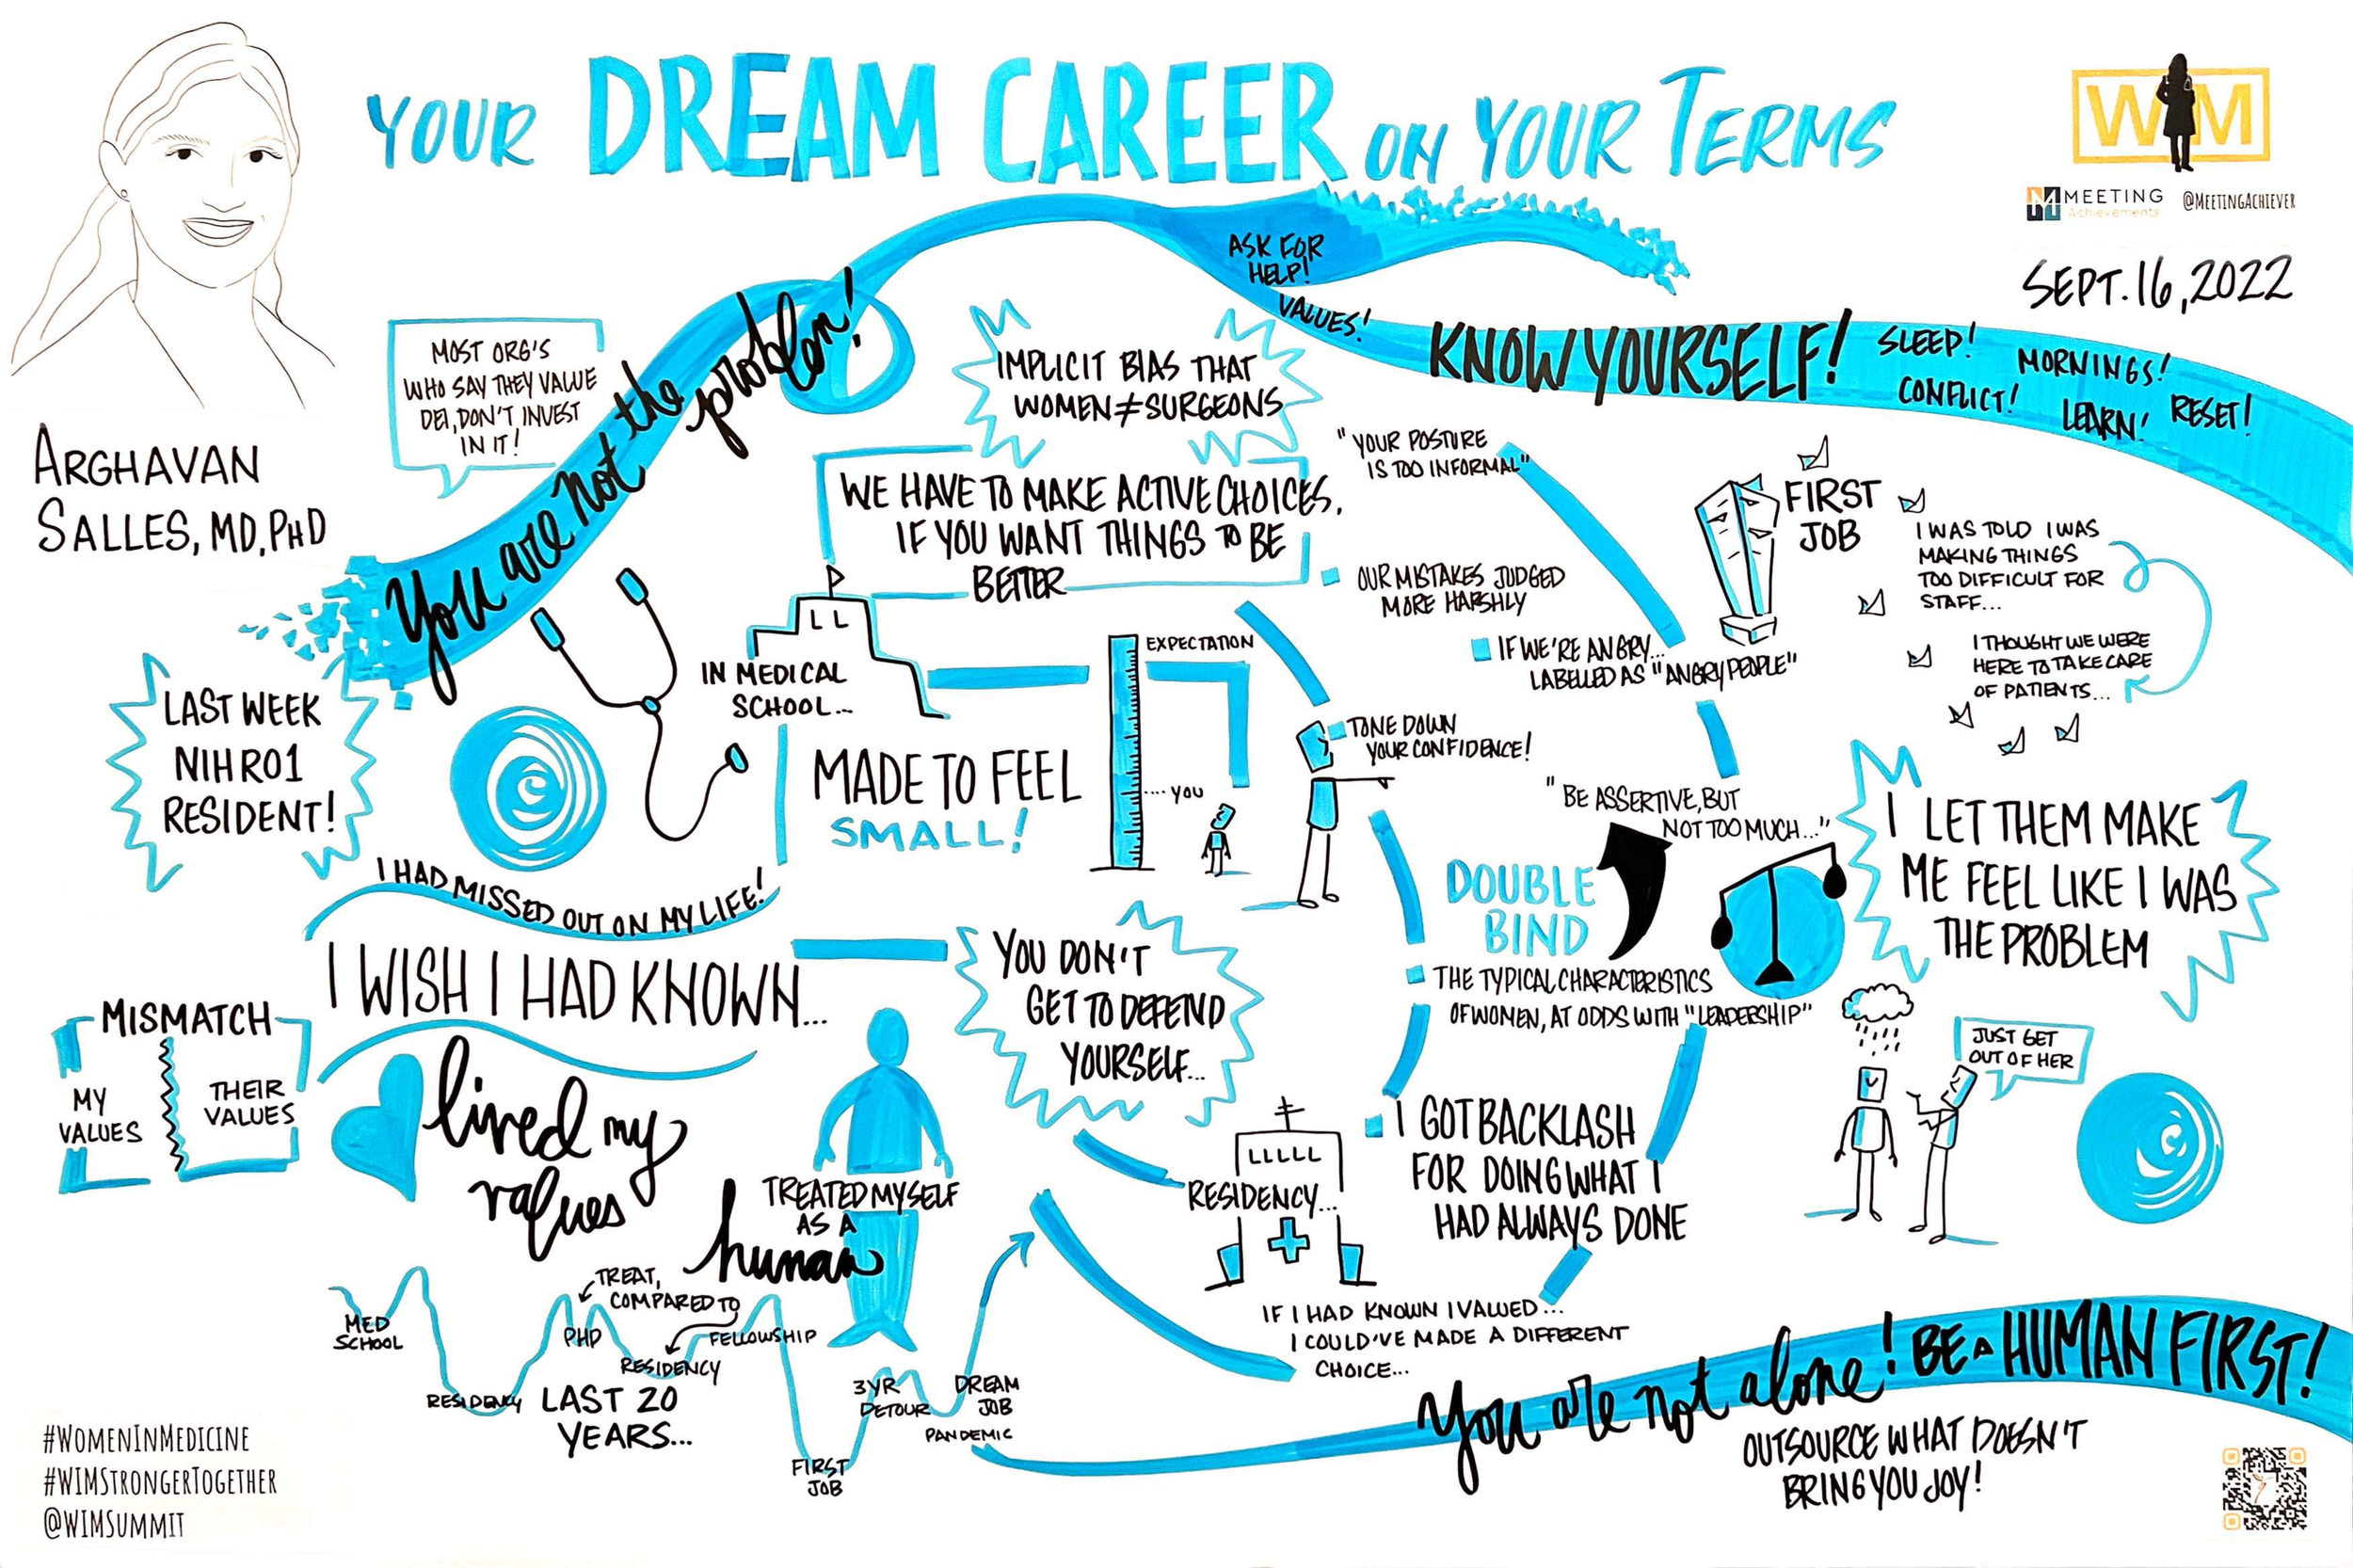 YOUR DREAM CAREER ON YOUR TERMS
WIM
MEETING
Achievements
@MEETINGACHIEVER
SEPT. 16, 2022
ARGHAVAN
SALLES, MD, PHD
MOST ORG'S
WHO SAY THEY VALUE
DEI, DON'T INVEST
IN IT!
You are not the problem!
ASK FOR
HELP!
VALUES!
KNOW YOURSELF!
SLEEP!
CONFLICT!
MORNINGS!
LEARN!
RESET!
IMPLICIT BIAS THAT
WOMEN≠SURGEONS
WE HAVE TO MAKE ACTIVE CHOICES,
IF YOU WANT THINGS TO BE
BETTER
"YOUR POSTURE
IS TOO INFORMAL"
OUR MISTAKES JUDGED
MORE HARSHLY
IF WE'RE ANGRY...
LABELLED AS "ANGRY PEOPLE"
TONE DOWN
YOUR CONFIDENCE!
"BE ASSERTIVE, BUT
NOT TOO MUCH..."
DOUBLE
BIND
THE TYPICAL CHARACTERISTICS
OF WOMEN, AT ODDS WITH "LEADERSHIP"
FIRST
JOB
I WAS TOLD I WAS
MAKING THINGS
TOO DIFFICULT FOR
STAFF...
I THOUGHT WE WERE
HERE TO TAKE CARE
OF PATIENTS...
I LET THEM MAKE
ME FEEL LIKE I WAS
THE PROBLEM
JUST GET
OUT OF HER
LAST WEEK
NIH RO1
RESIDENT!
IN MEDICAL
SCHOOL...
MADE TO FEEL
SMALL!
EXPECTATION
.... YOU
I HAD MISSED OUT ON MY LIFE!
I WISH I HAD KNOWN...
MISMATCH
MY
VALUES
THEIR
VALUES
lived my
values
TREATED MYSELF
AS A
human
YOU DON'T
GET TO DEFEND
YOURSELF...
RESIDENCY...
I GOT BACKLASH
FOR DOING WHAT I
HAD ALWAYS DONE
IF I HAD KNOWN I VALUED...
I COULD'VE MADE A DIFFERENT
CHOICE...
MED
SCHOOL
RESIDENCY
TREAT,
COMPARED TO
PHD
RESIDENCY
FELLOWSHIP
LAST 20
YEARS...
FIRST
JOB
3YR
DETOUR
DREAM
JOB
PANDEMIC
You are not alone! BE A HUMAN FIRST!
OUTSOURCE WHAT DOESN'T
BRING YOU JOY!
#WOMENINMEDICINE
#WIMSTRONGERTOGETHER
@WIMSUMMIT